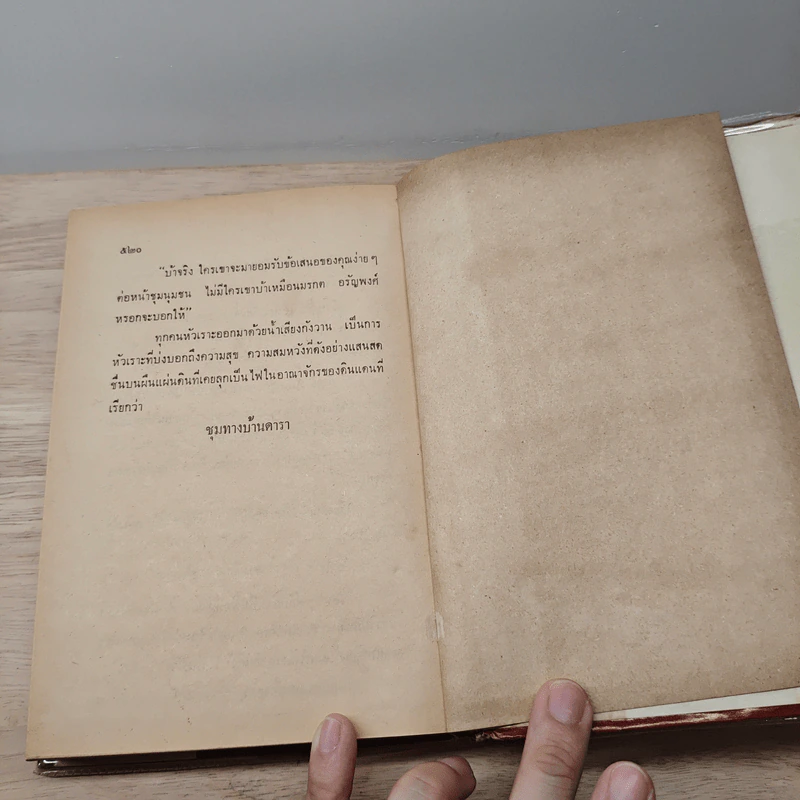 ๕๒๐
“บ้าจริง ใครเขาจะมายอมรับข้อเสนอของคุณง่าย ๆ
ต่อหน้าชุมนุมชน ไม่มีใครเขาบ้าเหมือนมรกต อรัญพงศ์
หรอกจะบอกให้”
ทุกคนหัวเราะออกมาด้วยน้ำเสียงกังวาน เป็นการ
หัวเราะที่บ่งบอกถึงความสุข ความสมหวังที่ดังอย่างแสนสด
ชื่นบนผืนแผ่นดินที่เคยลุกเป็นไฟในอาณาจักรของดินแดนที่
เรียกว่า
ชุมทางบ้านดารา